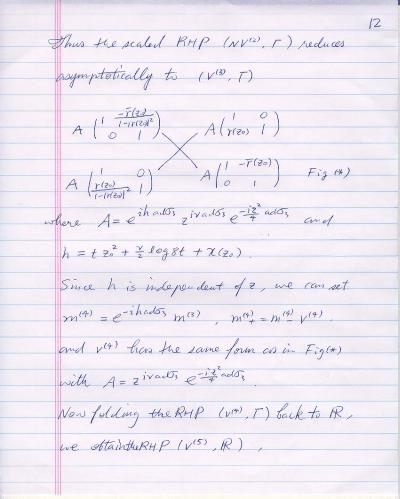 12
Thus the scaled RHP (NV⁽²⁾, Γ) reduces
asymptotically to (V⁽³⁾, Γ)
A ( 1 -r̄(z₀)/(1-|r(z₀)|²) ; 0 1 ) A ( 1 0 ; r(z₀) 1 )
A ( 1 0 ; r(z₀)/(1-|r(z₀)|²) 1 ) A ( 1 -r̄(z₀) ; 0 1 ) Fig (*)
where A = e^{ih adσ₃} z^{iν adσ₃} e^{-iz²/4 adσ₃} and
h = t z₀² + ν/2 log 8t + χ(z₀).
Since h is independent of z, we can set
m⁽⁴⁾ = e^{-ih adσ₃} m⁽³⁾, m⁽⁴⁾₊ = m⁽⁴⁾₋ V⁽⁴⁾.
and V⁽⁴⁾ has the same form as in Fig(*)
with A = z^{iν adσ₃} e^{-iz²/4 adσ₃}.
Now folding the RHP (V⁽⁴⁾, Γ) back to ℝ,
we obtain the RHP (V⁽⁵⁾, ℝ),